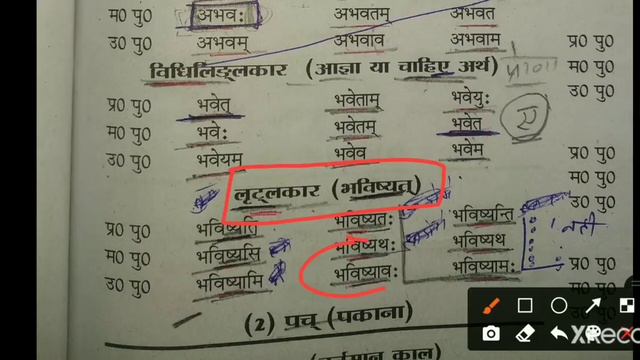 म० पु० अभवः अभवतम् अभवत
उ० पु० अभवम् अभवाव अभवाम प्र० पु०
विधिलिङ्लकार (आज्ञा या चाहिए अर्थ) म० पु०
उ० पु०
प्र० पु० भवेत् भवेताम् भवेयुः
म० पु० भवेः भवेतम् भवेत
उ० पु० भवेयम भवेव भवेम प्र० पु०
म० पु०
लृट्लकार (भविष्यत्) उ० पु०
प्र० पु० भविष्यति भविष्यतः भविष्यन्ति
म० पु० भविष्यसि भविष्यथः भविष्यथ
उ० पु० भविष्यामि भविष्यावः भविष्यामः प्र० पु०
(2) प्रच् (पकाना)
XRec
(वर्तमान काल)